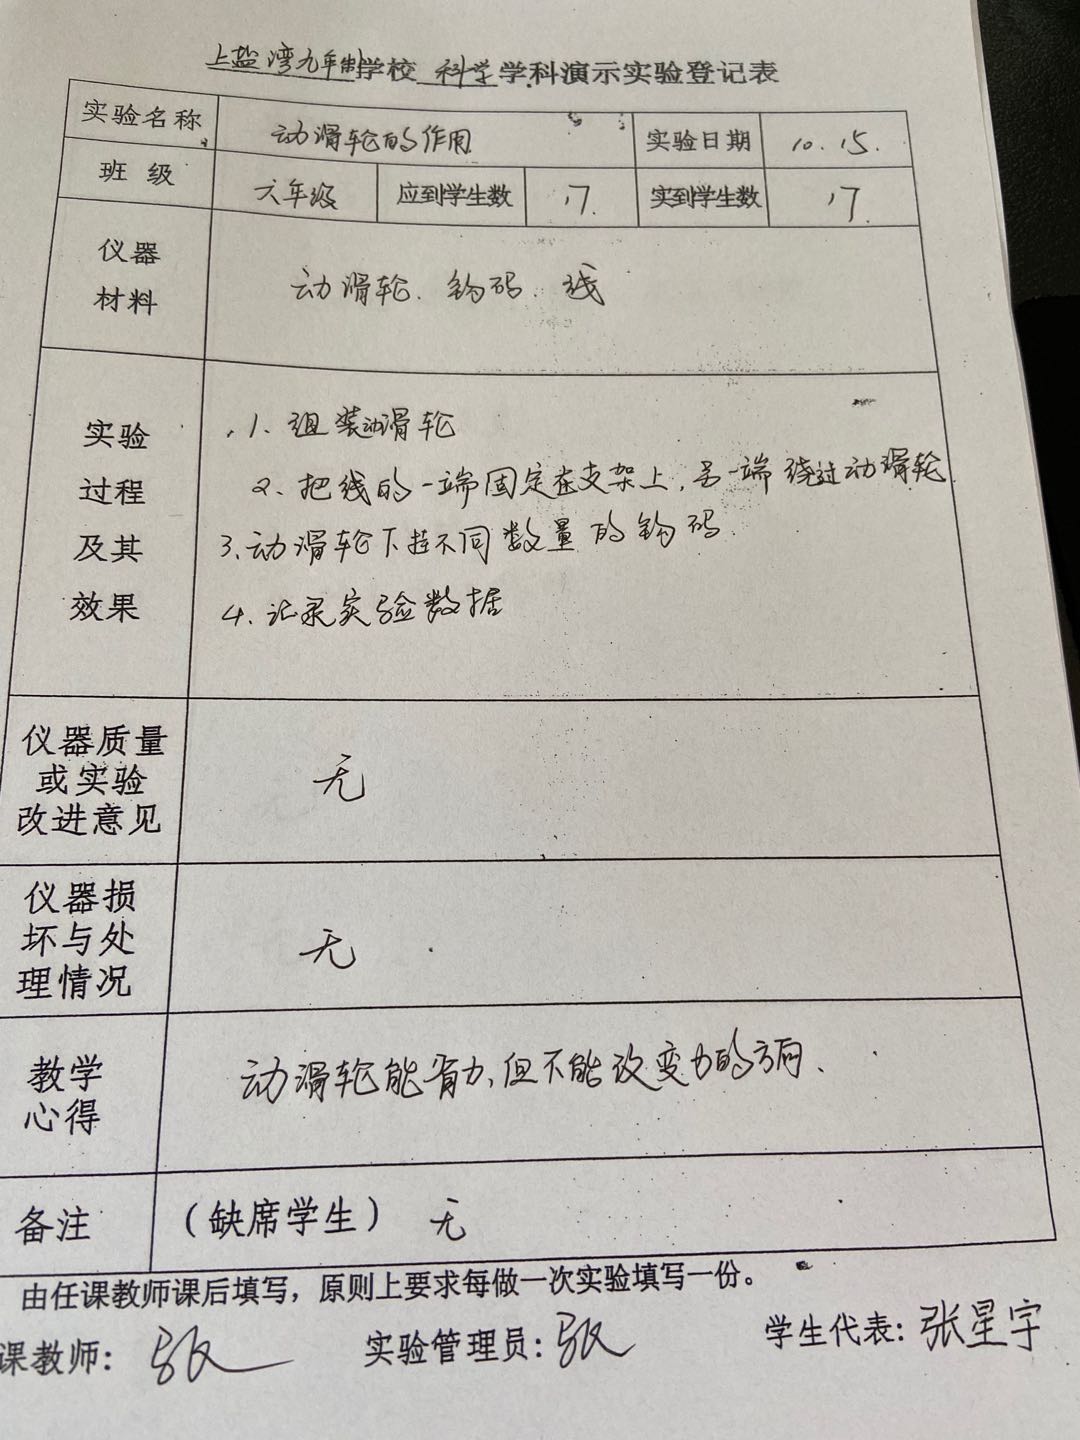 上盐湾九年制学校 科学学科演示实验登记表
实验名称 动滑轮的作用 实验日期 10.15.
班级 六年级 应到学生数 17. 实到学生数 17.
仪器
材料
动滑轮、钩码、线
实验
过程
及其
效果
1、组装动滑轮
2、把线的一端固定在支架上,另一端绕过动滑轮
3、动滑轮下挂不同数量的钩码.
4、记录实验数据
仪器质量
或实验
改进意见
无
仪器损
坏与处
理情况
无
教学
心得
动滑轮能省力,但不能改变力的方向、
备注 (缺席学生) 无
由任课教师课后填写,原则上要求每做一次实验填写一份。
课教师: 实验管理员: 学生代表: 张星宇